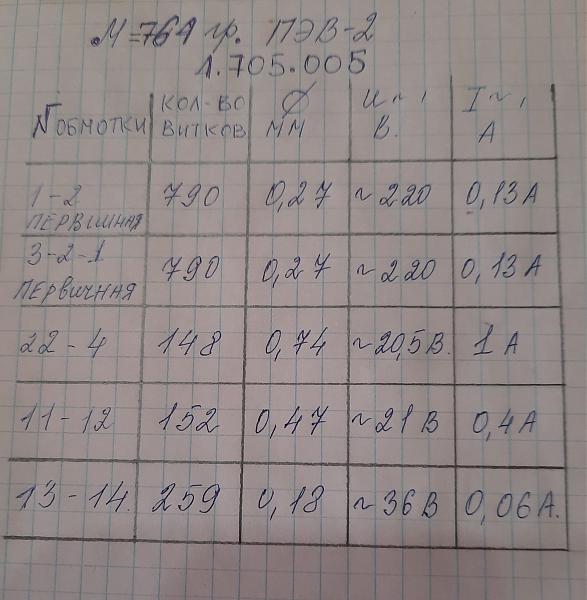 М=764 гр. ПЭВ-2
1.705.005
№ ОБМОТКИ КОЛ-ВО ВИТКОВ Ø ММ U~, В. I~, А
1-2 ПЕРВИЧНАЯ 790 0,27 ~220 0,13А
3-2-1 ПЕРВИЧНАЯ 790 0,27 ~220 0,13А
22-4 148 0,74 ~20,5В. 1А
11-12 152 0,47 ~21В 0,4А
13-14. 259 0,18 ~36В 0,06А.